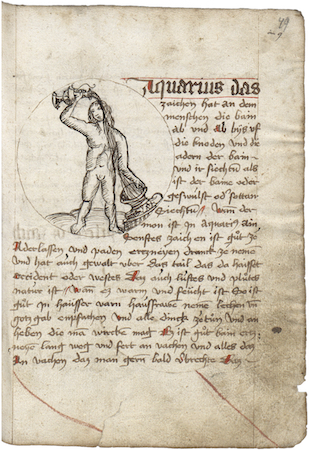 49
Aquarius das
zaichen hat an dem
menschen die bain
ab vnd ab bys vf
die knoden vnd die
adern der bain
vnd ir siechtu als
ist der baine oder
geswulst od
siechtu Wann der
mon ist in Aquari
zaichen ist gůt ze
Aderlassen vnd paden ertzneyen dranck ze neme
vnd hat auch gewalt vber das tail das da haisset
occident oder westes Im auch lustes vnd plutes
natur ist Wan er warm vnd feucht ist So ist
gůt in hauser varn hausfrawe neme lechen vm
gotzgab enpfachen vnd alle dinck zetun vnd an
heben die ma wircke mag Es ist gůt
lang weg vnd fert an vachen vnd alles das
An vachen das man gern bald